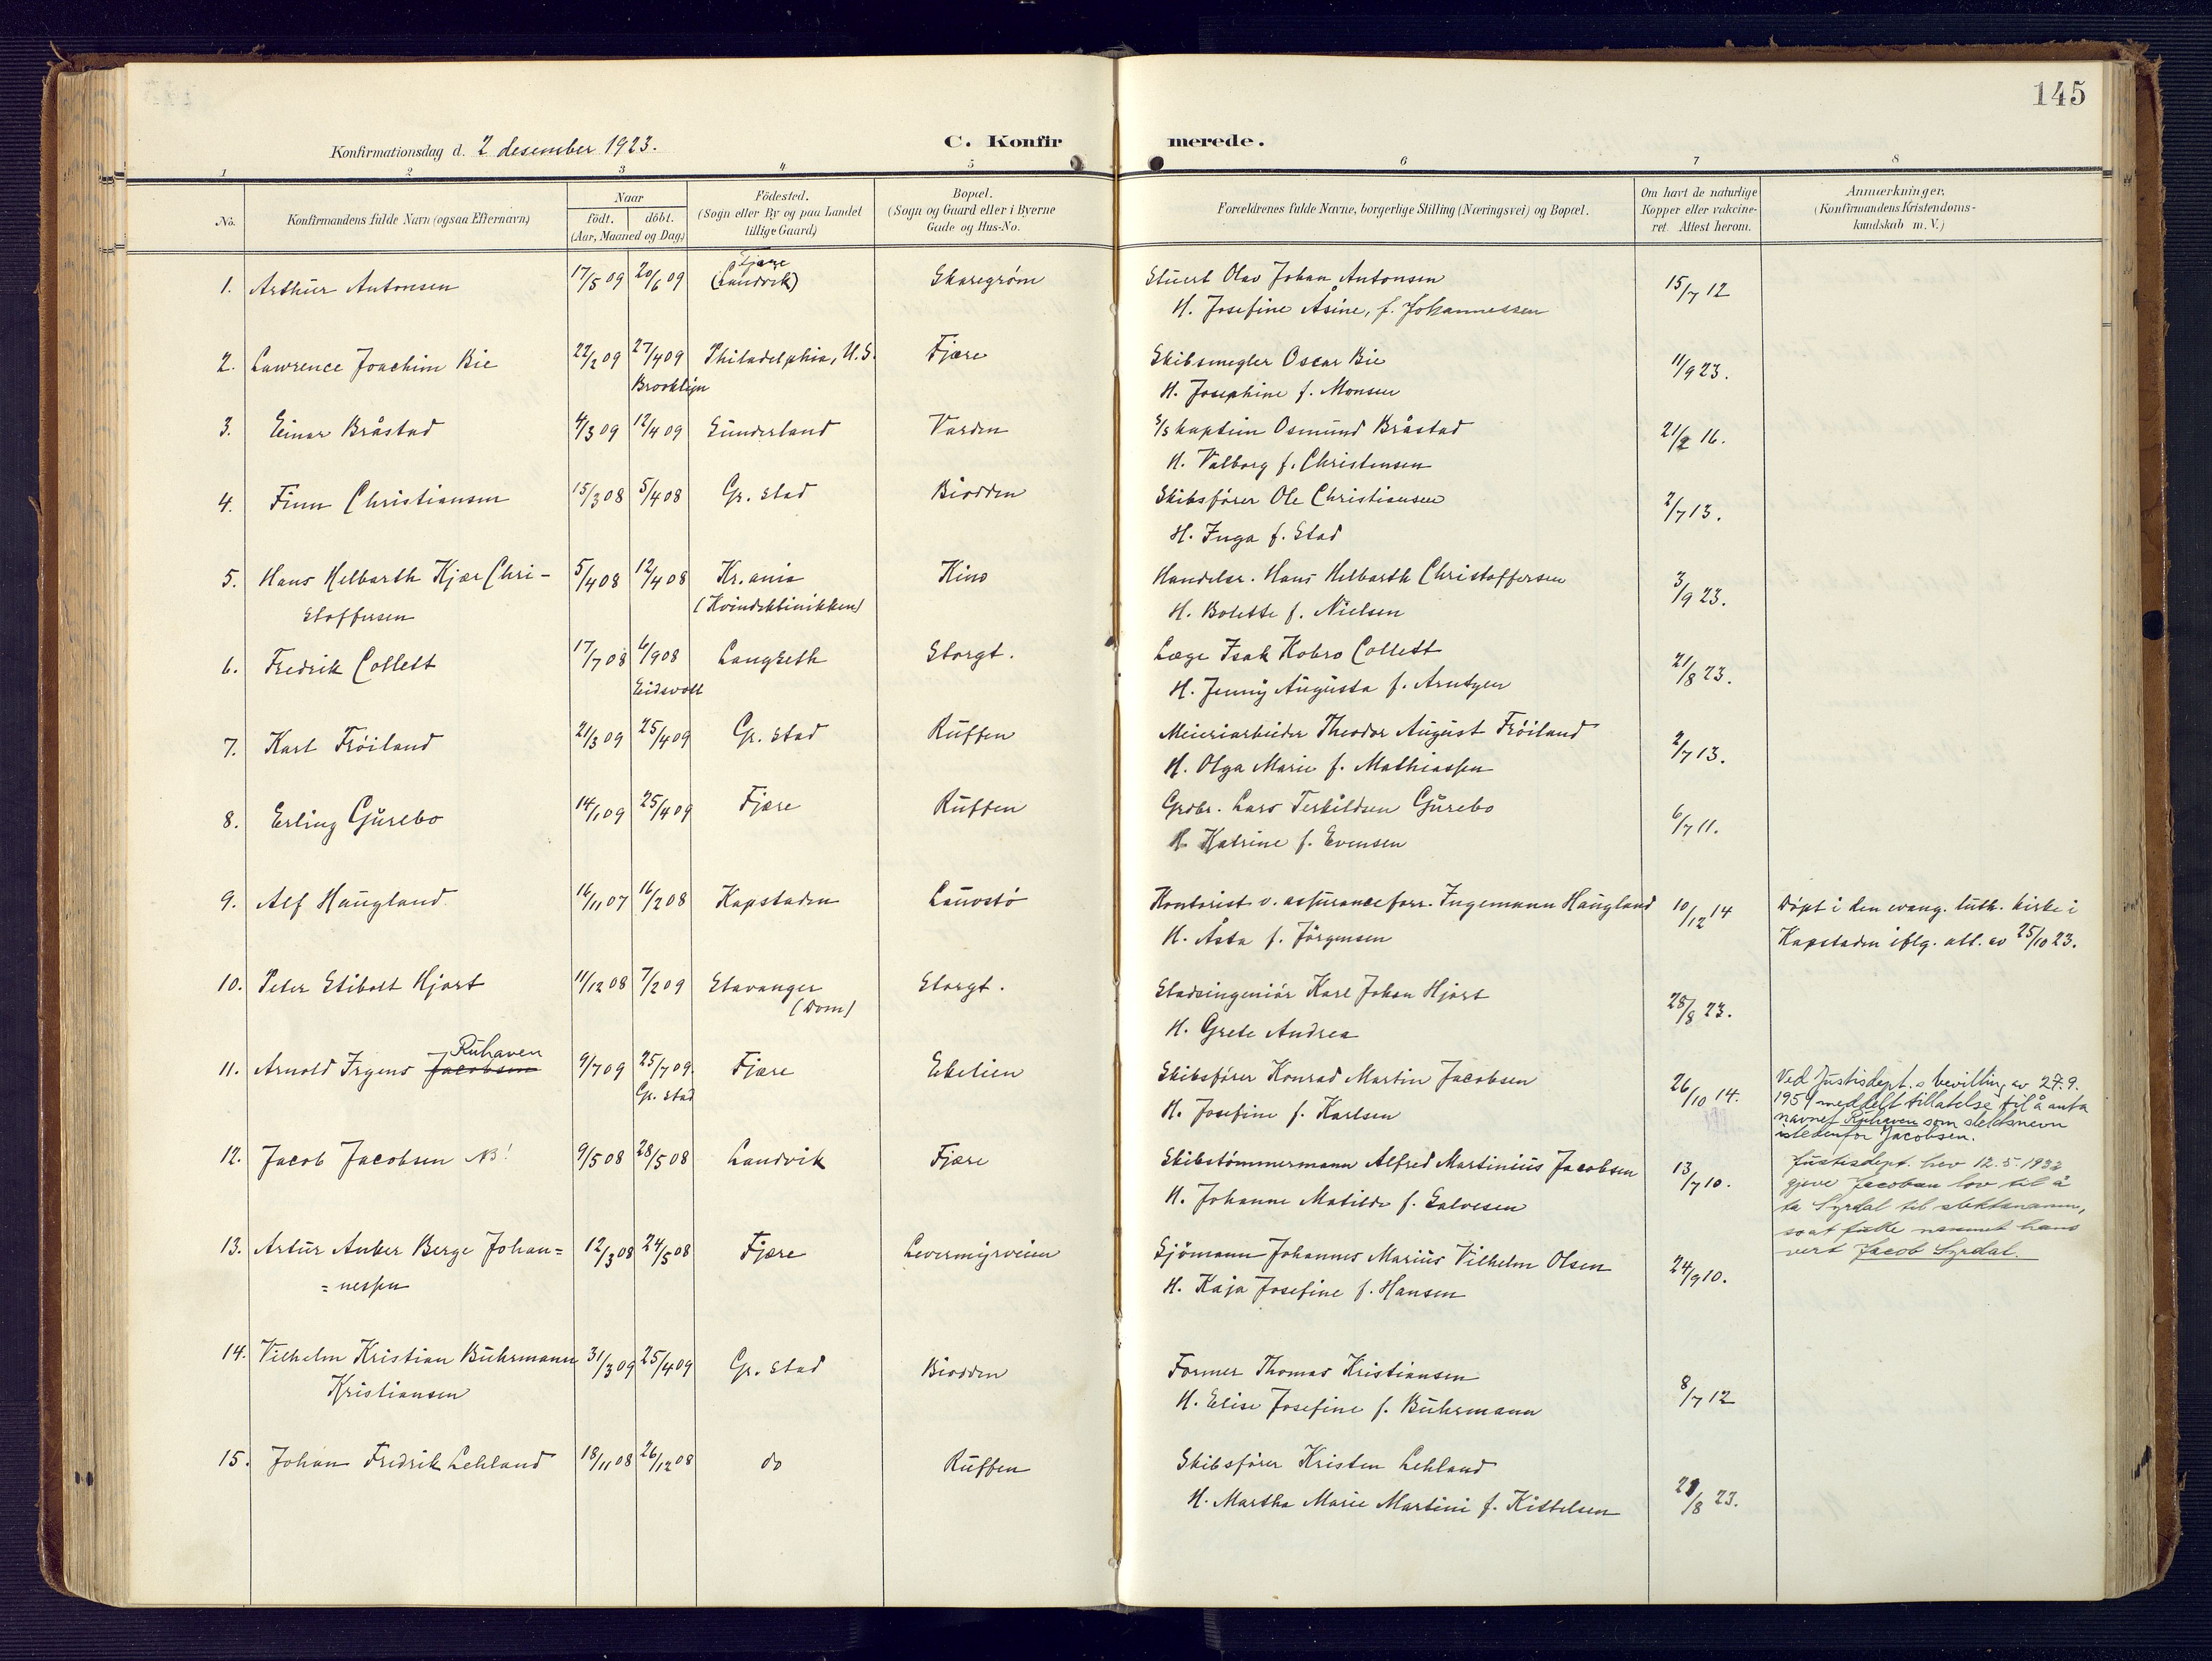 145
Konfirmationsdag d. 2 desember 1923.
C. Konfirmerede.
1 2 3 4 5 6 7 8
No.
Konfirmandens fulde Navn (ogsaa Efternavn)
Naar
födt. döbt.
(Aar, Maaned og Dag.)
Födested.
(Sogn eller By og paa Landet
tillige Gaard)
Bopæl.
(Sogn og Gaard eller i Byerne
Gade og Hus-No.
Forældrenes fulde Navne, borgerlige Stilling (Næringsvei) og Bopæl.
Om havt de naturlige
Kopper eller vakcine-
ret. Attest herom.
Anmerkninger.
(Konfirmandens Kristendoms-
kundskab m. V.)
Fjære
1. Arthur Antonsen 17/5 09 20/6 09 (Landvik) Skaregrøm Stuert Olav Johan Antonsen 15/7 12
H. Josefine Åsine, f. Johannessen
2. Lawrence Joachim Bie 22/2 09 27/4 09 Philadelphia, U.S. Fjære Skibsmegler Oscar Bie 11/9 23.
Brooklyn H. Josephine f. Monsen
3. Einar Bråstad 4/3 09 12/4 09 Sunderland Varden S/S kaptein Osmund Bråstad 21/2 16.
H. Valborg f. Christensen
4. Finn Christiansen 15/3 08 5/4 08 Gr. stad Biodden Skibsfører Ole Christiansen 2/7 13.
H. Inga f. Stad
5. Hans Helbarth Kjær Chri- 5/4 08 12/4 08 Kr.ania Kino Handelsr. Hans Helbarth Christoffersen 3/9 23.
stoffersen (Kvindeklinikken) H. Bolette f. Nielsen
6. Fredrik Collett 17/7 08 6/9 08 Langseth Storgt. Læge Isak Kobro Collett 21/8 23.
Eidsvoll H. Jenny Augusta f. Arntzen
7. Karl Frøiland 21/3 09 25/4 09 Gr. stad Ruffen Meieriarbeider Theodor August Frøiland 2/7 13.
H. Olga Marie f. Mathiassen
8. Erling Gurebo 14/1 09 25/4 09 Fjære Ruffen Grdbr. Lars Terkildsen Gurebo 6/7 11.
H. Katrine f. Evensen
9. Alf Haugland 16/11 07 16/2 08 Kapstaden Lauvstø Kontorist v. assuranceforr. Ingemann Haugland 10/12 14 Døpt i den evang. luth. kirke i
H. Åsta f. Jørgensen Kapstaden iflg. att. av 25/10 23.
10. Peter Stibolt Hjort 11/12 08 7/2 09 Stavanger Storgt. Stadsingeniør Karl Johan Hjort 28/8 23.
(Dom) H. Grete Andrea
Ruhaven
11. Arnold Irgens Jacobsen 9/7 09 25/7 09. Fjære Ekelien Skibsfører Konrad Martin Jacobsen 26/10 14.
Gr. stad H. Josefine f. Karlsen
Ved Justisdept.s bevilling av 27.9.
1951 meddelt tillatelse til å anta
navnet Ruhaven som slektsnavn
istedenfor Jacobsen.
12. Jacob Jacobsen NB! 9/5 08 28/5 08 Landvik Fjære Skibstømmermann Alfred Martinius Jacobsen 13/7 10.
H. Johanne Matilde f. Salvesen
Justisdept. hev 12.5.1932
gjeve Jacobsen lov til å
ta Syrdal til slektsnamn,
soat fulle namnet hans
vert Jacob Syrdal.
13. Artur Anker Berge Johan= 12/3 08 24/5 08 Fjære Levermyrveien Sjømann Johannes Marius Vilhelm Olsen 24/9 10.
= nessen H. Kaja Josefine f. Hansen
14. Vilhelm Kristian Buhrmann 31/3 09 25/4 09 Gr. stad Biodden Former Thomas Kristiansen 8/7 12
Kristiansen H. Elise Josefine f. Buhrmann
15. Johan Fredrik Lehland 18/11 08 26/12 08 do Ruffen Skibsfører Kristen Lehland 21/8 23.
H. Martha Marie Martini f. Kittelsen